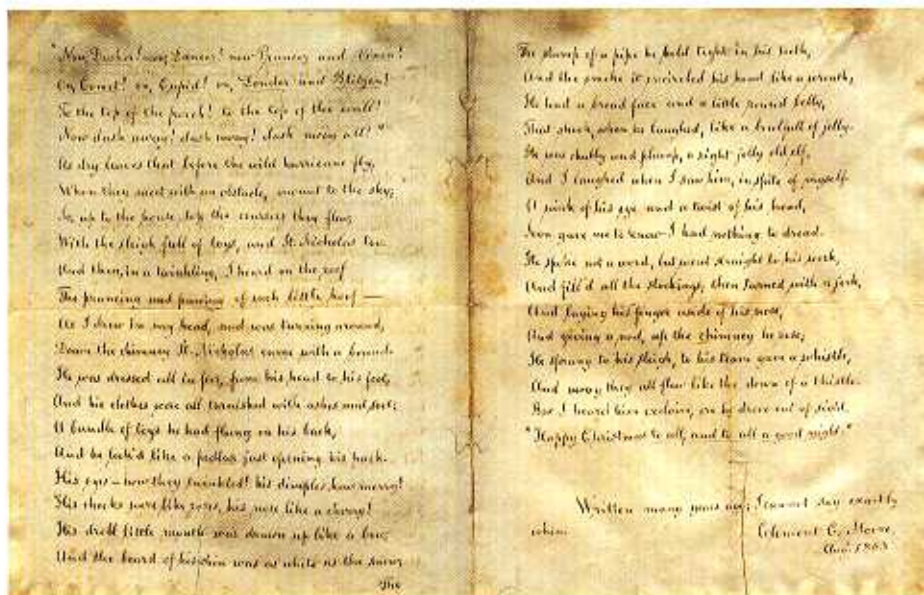 "Now, Dasher! now, Dancer! now Prancer and Vixen!
On, Comet! on, Cupid! on, Donder and Blitzen!
To the top of the porch! to the top of the wall!
Now dash away! dash away! dash away all!"
As dry leaves that before the wild hurricane fly,
When they meet with an obstacle, mount to the sky;
So, up to the house-top the coursers they flew,
With the sleigh full of toys, and St. Nicholas too.
And then, in a twinkling, I heard on the roof
The prancing and pawing of each little hoof —
As I drew in my head, and was turning around,
Down the chimney St. Nicholas came with a bound.
He was dressed all in fur, from his head to his foot,
And his clothes were all tarnished with ashes and soot;
A bundle of toys he had flung on his back,
And he look'd like a pedlar just opening his pack.
His eyes — how they twinkled! his dimples, how merry!
His cheeks were like roses, his nose like a cherry!
His droll little mouth was drawn up like a bow,
And the beard of his chin was as white as the snow;
The
The stump of a pipe he held tight in his teeth,
And the smoke it encircled his head like a wreath,
He had a broad face and a little round belly,
That shook, when he laughed, like a bowlfull of jelly.
He was chubby and plump, a right jolly old elf,
And I laughed when I saw him, in spite of myself.
A wink of his eye and a twist of his head,
Soon gave me to know I had nothing to dread.
He spoke not a word, but went straight to his work,
And fill'd all the stockings; then turned with a jerk,
And laying his finger aside of his nose,
And giving a nod, up the chimney he rose;
He sprang to his sleigh, to his team gave a whistle,
And away they all flew like the down of a thistle.
But I heard him exclaim, ere he drove out of sight,
"Happy Christmas to all, and to all a good night."
Written many years ago; I cannot say exactly
when.
Clement C. Moore,
1863